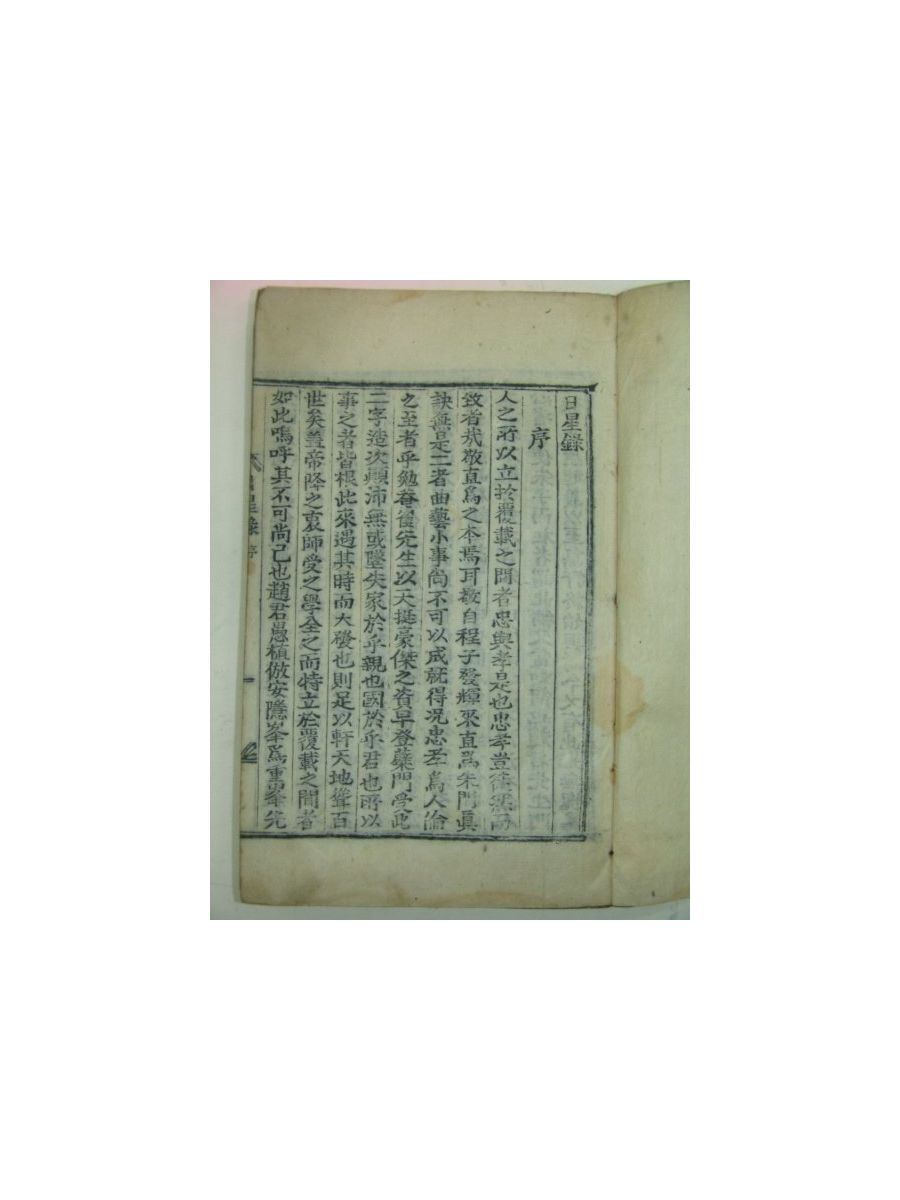 日星錄
序
人之所以立於覆載之間者忠與孝是也忠孝豈徒然而
致者哉敬直爲之本焉耳敬自程子發輝來直爲朱門眞
訣無是二者曲藝小事尚不可以成就得况忠孝爲人倫
之至者乎勉菴崔先生以天挺豪傑之資早登蘗門受此
二字造次顚沛無或墜失家於乎親也國於乎君也所以
事之者皆根此來遇其時而大發也則足以軒天地聳百
世矣蓋帝降之衷師受之學全之而特立於覆載之間者
如此嗚呼其不可尚已也趙君愚植倣安隱峯爲重峯先
日星錄 序